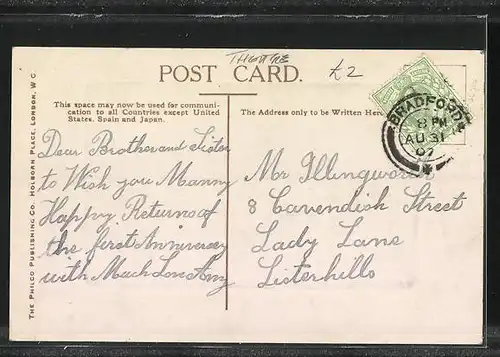 THEATRE
£2
POST CARD.
This space may now be used for communi-
cation to all Countries except United
States, Spain and Japan.
The Address only to be Written Here
BRADFORD
8 PM
AU 31
07
4
Dear Brother and Sister
to Wish you Manny
Happy Returns of
the first Anniversery
with Much Love Amy
Mr Illingworth
8 Cavendish Street
Lady Lane
Listerhills
THE PHILCO PUBLISHING CO. HOLBORN PLACE, LONDON, W.C.